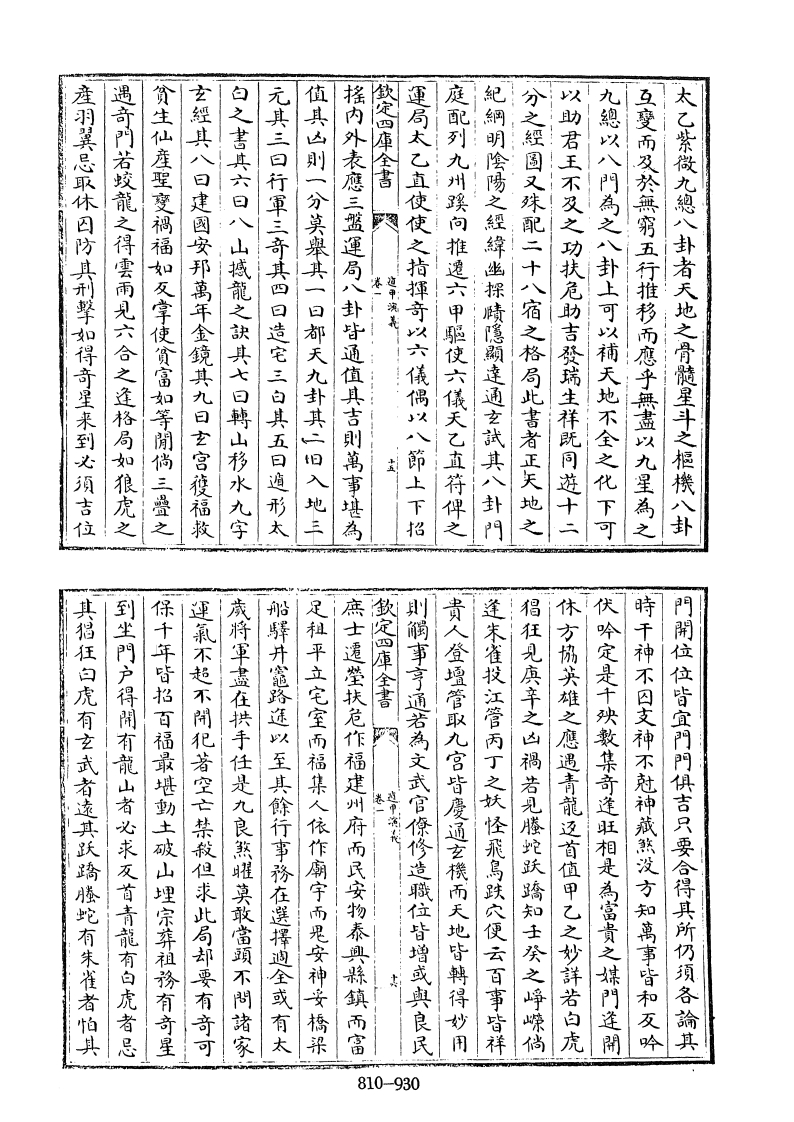 太乙紫微九總八卦者天地之骨髓星斗之樞機八卦
互變而及於無窮五行推移而應乎無盡以九星為之
九總以八門為之八卦上可以補天地不全之化下可
以助君王不及之功扶危助吉發瑞生祥既同遊十二
分之經圖又殊配二十八宿之格局此書者正天地之
紀綱明陰陽之經緯幽探賾隱顯達通玄試其八卦門
庭配列九州蹊向推遷六甲驅使六儀天乙直符俾之
運局太乙直使使之指揮奇以六儀偶以八節上下招
欽定四庫全書
遁甲演義
卷一
十五
搖内外表應三盤運局八卦皆通值其吉則萬事堪為
值其凶則一分莫舉其一曰都天九卦其二曰入地三
元其三曰行軍三奇其四曰造宅三白其五曰遁形太
白之書其六曰八山撼龍之訣其七曰轉山移水九字
玄經其八曰建國安邦萬年金鏡其九曰玄宮獲福救
貧生仙產聖變禍福如反掌使貧富如等閒倘三疊之
遇奇門若蛟龍之得雲雨見六合之逢格局如狼虎之
產羽翼忌取休囚防其刑擊如得奇星来到必須吉位
門開位位皆宜門門俱吉只要合得其所仍須各論其
時干神不囚支神不尅神藏煞没方知萬事皆和反吟
伏吟定是千殃數集奇逢旺相是為富貴之媒門逢開
休方協英雄之應遇青龍迈首值甲乙之妙詳若白虎
猖狂見庚辛之凶禍若見螣蛇跃蹻知壬癸之崢嶸倘
逢朱雀投江管丙丁之妖怪飛鳥跌穴便云百事皆祥
貴人登壇管取九宫皆慶通玄機而天地皆轉得妙用
則觸事亨通若為文武官僚修造職位皆增或與良民
欽定四庫全書
遁甲演義
卷一
十六
庶士遷塋扶危作福建州府而民安物泰興縣鎮而富
足租平立宅室而福集人依作廟宇而鬼安神妥橋梁
船驛井竈路途以至其餘行事務在選擇週全或有太
歲將軍盡在拱手任是九良煞曜莫敢當頭不問諸家
運氣不超不開犯著空亡禁殺但求此局却要有奇可
保千年皆招百福最堪動土破山埋宗葬祖務有奇星
到坐門户得開有龍山者必求反首青龍有白虎者忌
其猖狂白虎有玄武者遠其跃蹻螣蛇有朱雀者怕其
810—930